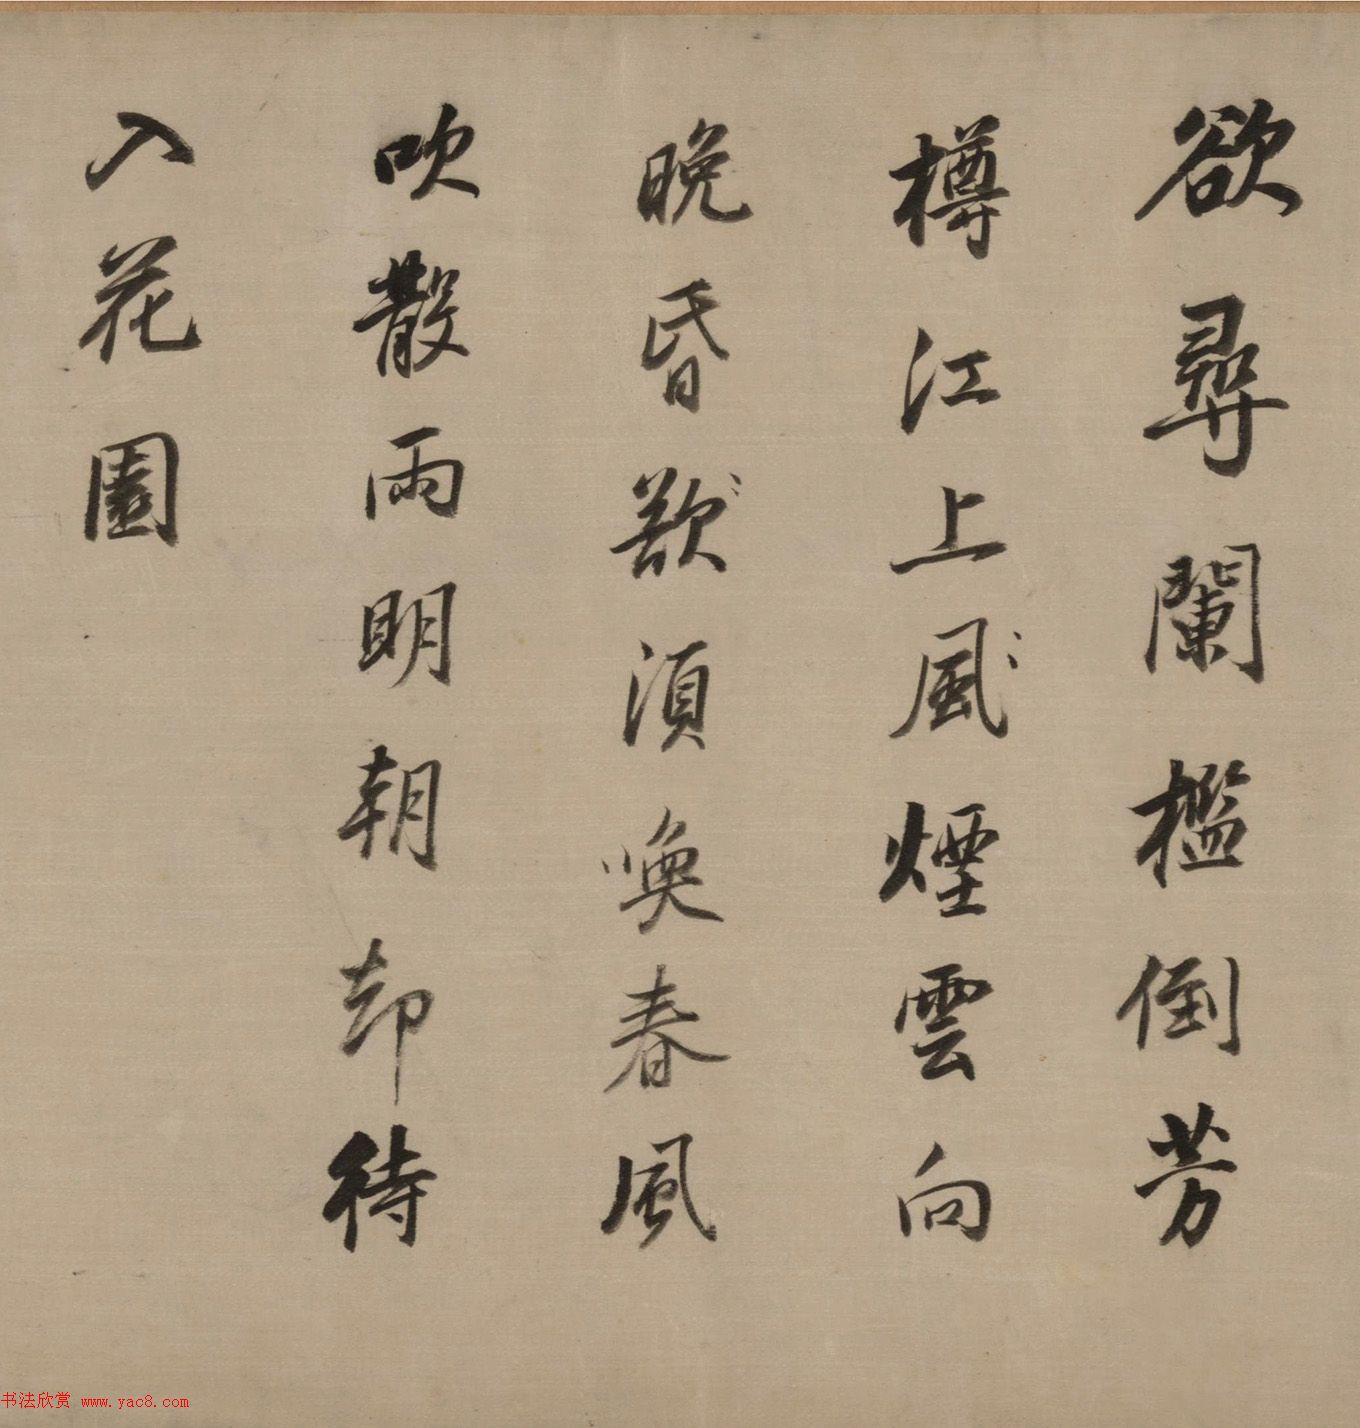 欲尋闌檻倒芳
樽江上風煙雲向
晚昏歎須喚春風
吹散雨明朝却待
入花園
书法欣赏 www.yac8.com